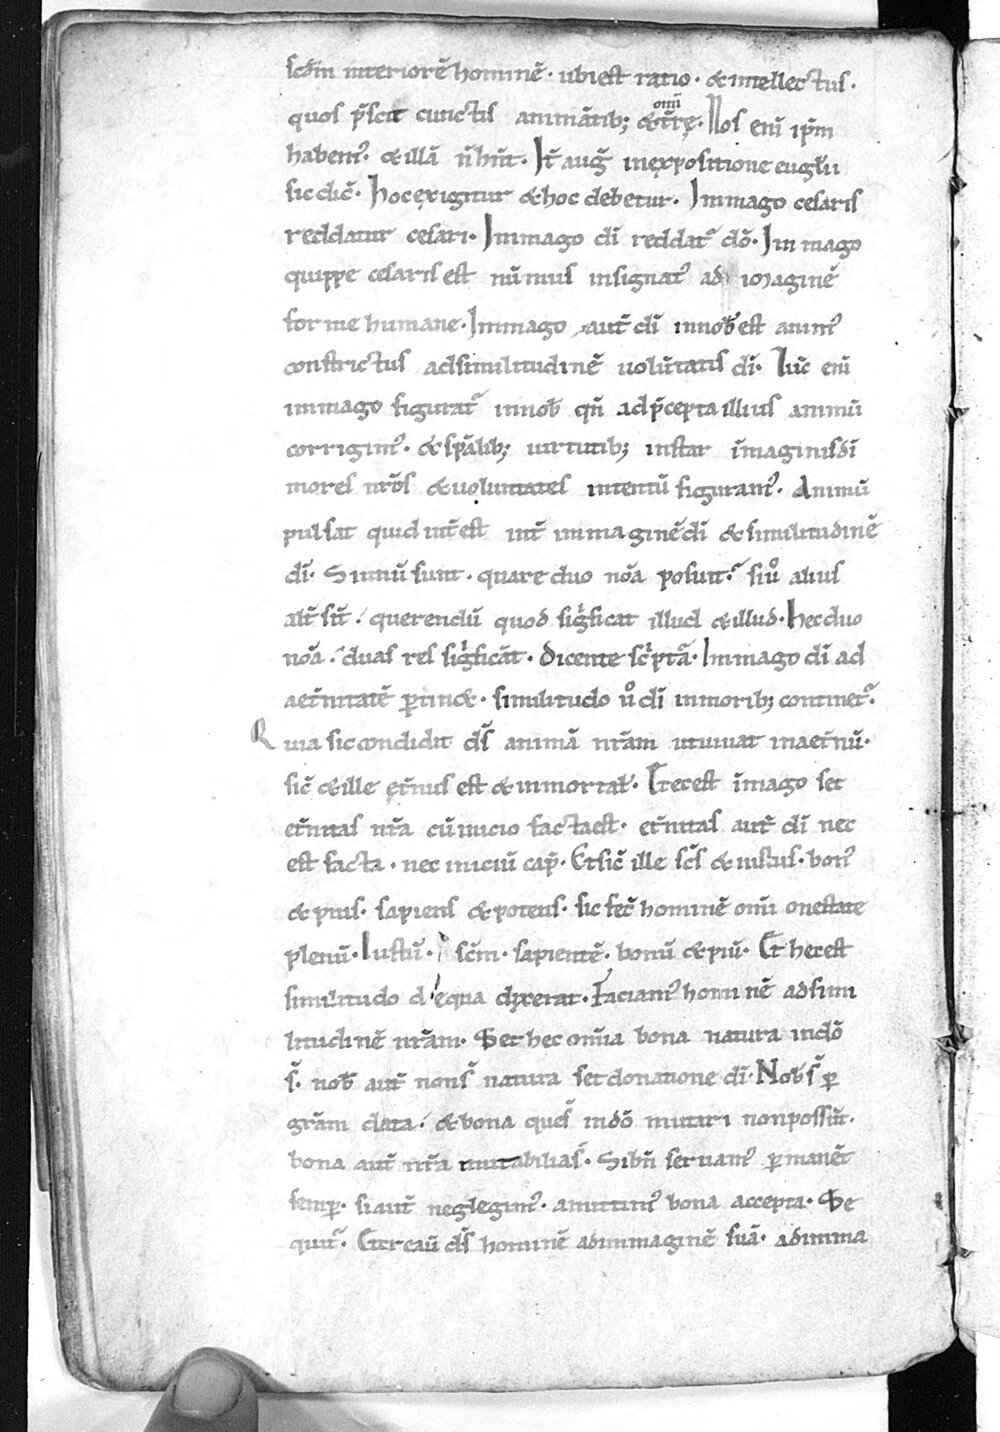 scdm̄ interiorē hominē · ubi est ratio · & intellectus ·
quos p̄scit cunctis animātib; & om̄i tr̄ę · Nos eni͞ ip̄m
habem᷒ · & illā n̄ hn̄t · It̄ auḡ in expositione euḡlii
sic dic̄ · Hoc exigitur & hoc debetur · Immago cesaris
reddatur cesari · Immago dī reddat᷑ dō · Immago
quippe cesaris est nūmus insignat᷒ ad imaginē
forme humane · Immago aut̄ dī in nob̄ est anim᷒
constrictus ad similitudinē volūtatis dī · Tūc enī
immago figurat᷑ in nob̄ qn̄ ad p̄cepta illius animū
corrigim᷒ · & sp̄alib; uirtutib; instar īmaginis dī
mores nr̄os & voluntates intentū figuram᷒ · Animū
pulsat quid int̄est int̄ immaginē dī & similitudinē
dī · Si unū sunt · quare duo nōa posuit · siu̇ alius
alt̄ st̄ · querendū quod sigͥficat illud & illud · Hec duo
nōa · duas res sigͥficāt · Dicente scͥptā · Immago dī ad
aet̄nitatē ꝑtin& · similitudo u̇ dī in morib; continet᷑ ·
Quia sic condidit ds̄ animā nr̄am ut uiuat in aet̄nū ·
sic̄ & ille ęt̄nus est & inmortal̄ · Et ec est īmago set
et̄nitas nr̄a cū inicio facta est · et̄nitas aut̄ dī nec
est facta · nec iniciū cap̄ · Et sic̄ ille sc̄s & iustus · bon᷒
& pius · sapiens & potens · sic fec̄ hominē om̄i onestate
plenū · Iustū · sc̄m · sapientē · bonū & piū · Et hec est
similitudo de qua dixerat · Faciam᷒ hominē ad simi
litudinē nr̄am · Set hec om̄ia bona natura in dō
s̄ · nob̄ aut̄ non s̄ natura set donatione dī · Nob̄ s̄ ꝑ
gr̄am data · & bona que s̄ in dō mutari non possūt ·
bona aut̄ nr̄a mutabilia s̄ · Si bn̄ seruam᷒ ꝑmanēt
semꝑ · si aut̄ neglegim᷒ · amittim᷒ bona accepta · Se
quit᷑ · Et creaū ds̄ hominē ad immaginē suā · ad imma